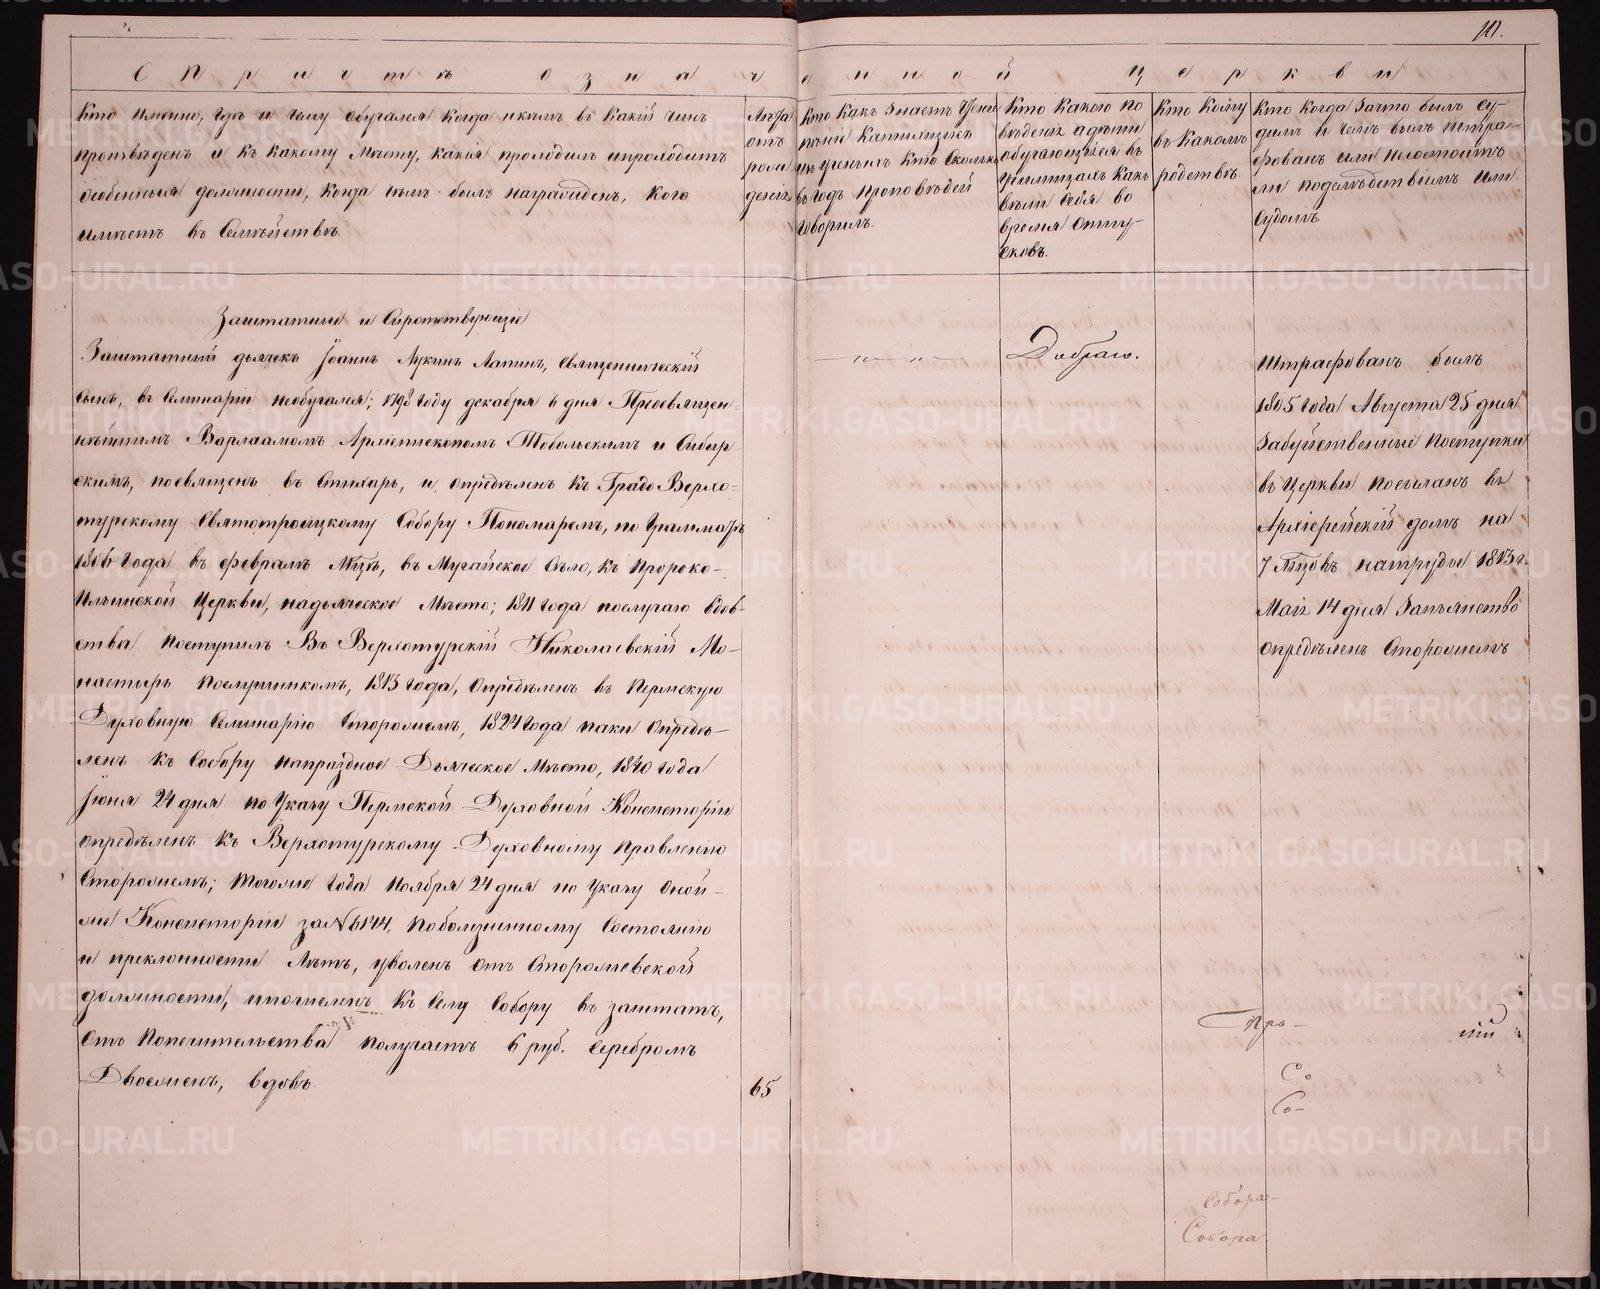 10.
О п р и ч т ѣ о з н а ч е н н о й ц е р к в и
Кто именно, гдѣ и чему обучался когда и кѣмъ въ какій чинъ
произведенъ и къ какому мѣсту, какія проходилъ и проходитъ
особенныя должности, когда чѣмъ былъ награжденъ, кого
имѣетъ въ семѣйствѣ.
Лѣта
отъ
рож
денія
Кто какъ знаетъ чтеніе
пѣніе катихизисъ
изъ ученыхъ кто сколько
въ годъ проповѣдей
говорилъ.
Кто какого по
вѣденія а дѣти
обучающіеся въ
училищахъ какъ
вели себя во
время отпу-
сковъ.
Кто кому
въ какомъ
родствѣ.
Кто когда за что былъ су-
димъ и чемъ былъ штра-
фованъ или не состоитъ
ли подслѣдствіемъ или
судомъ.
Заштатные и Сиротствующіе
Заштатный дьячекъ Іоаннъ Лукинъ Лапинъ, священническій
сынъ, въ семинаріи необучался; 1793 году декабря 6 дня Преосвящен-
нѣйшимъ Варлаамомъ Архіепископомъ Тобольскимъ и Сибир-
скимъ, посвященъ въ стихарь, и опредѣленъ къ Градо Верхо-
турскому Святотроицкому Собору Пономаремъ, по
1806 года въ февралѣ м-цѣ, въ Мугайское село, къ Пророко-
Ильинской Церкви, на дьяческое мѣсто; 1811 года послучаю вдов-
ства поступилъ въ Верхотурскій Николаевскій Мо-
настырь послушникомъ, 1813 года, опредѣленъ въ Пермскую
Духовную Семинарію сторожемъ, 1824 года паки опредѣ-
ленъ къ Собору на праздное Дьяческое мѣсто, 1840 года
Іюня 24 дня по Указу Пермской Духовной Консисторіи
опредѣленъ къ Верхотурскому Духовному Правленію
сторожемъ; тогоже года ноября 24 дня по Указу оной-
же Консисторіи за № 6144, поболезненному состоянію
и преклонности лѣтъ, уволенъ отъ сторожевской
должности, и причисленъ къ сему Собору въ заштатъ,
отъ попечительства получаетъ 6 руб. серебромъ
Двоежен, вдовъ.
65
— „ — „ —
Добраго.
Штрафованъ былъ
1805 года Августа 25 дня
за буйственные поступки
въ церкви посыланъ въ
Архіерейскій домъ на
7 м-цовъ на труды 1813 г.
Маія 14 дня за пьянство
опредѣленъ сторожемъ
Про-
ній
Со
Со-
Собора-
Собора